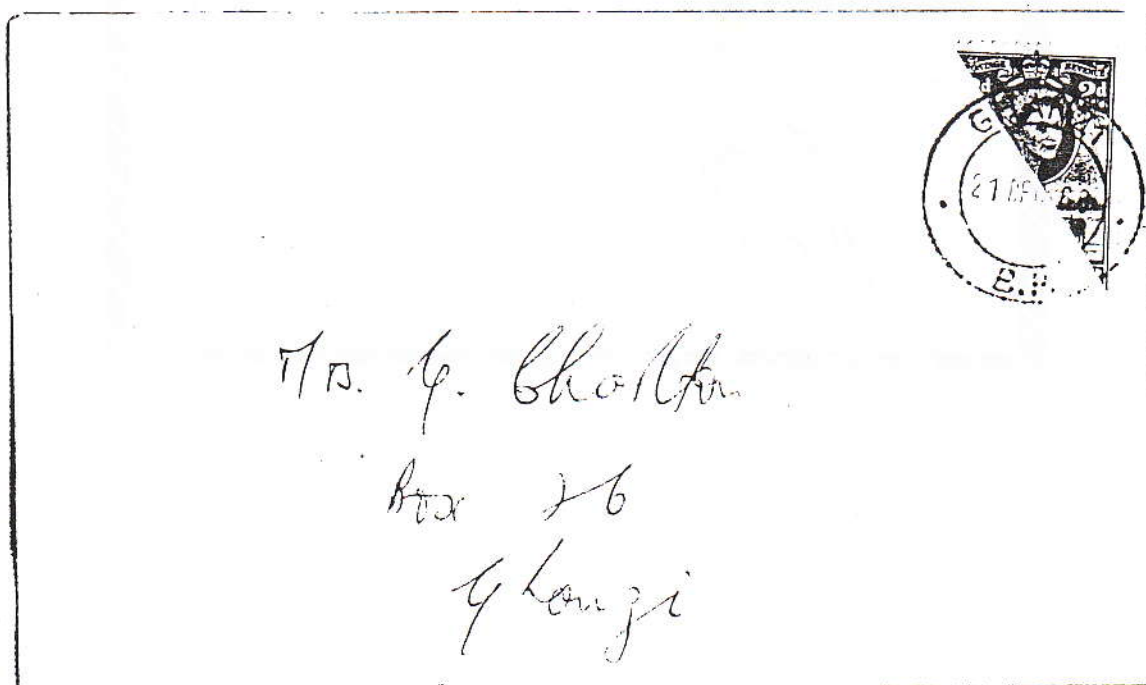 POSTAGE REVENUE
d 2d
G
21 DE
B.P.
Mr. G. Chorlton
Box 26
Ghanzi